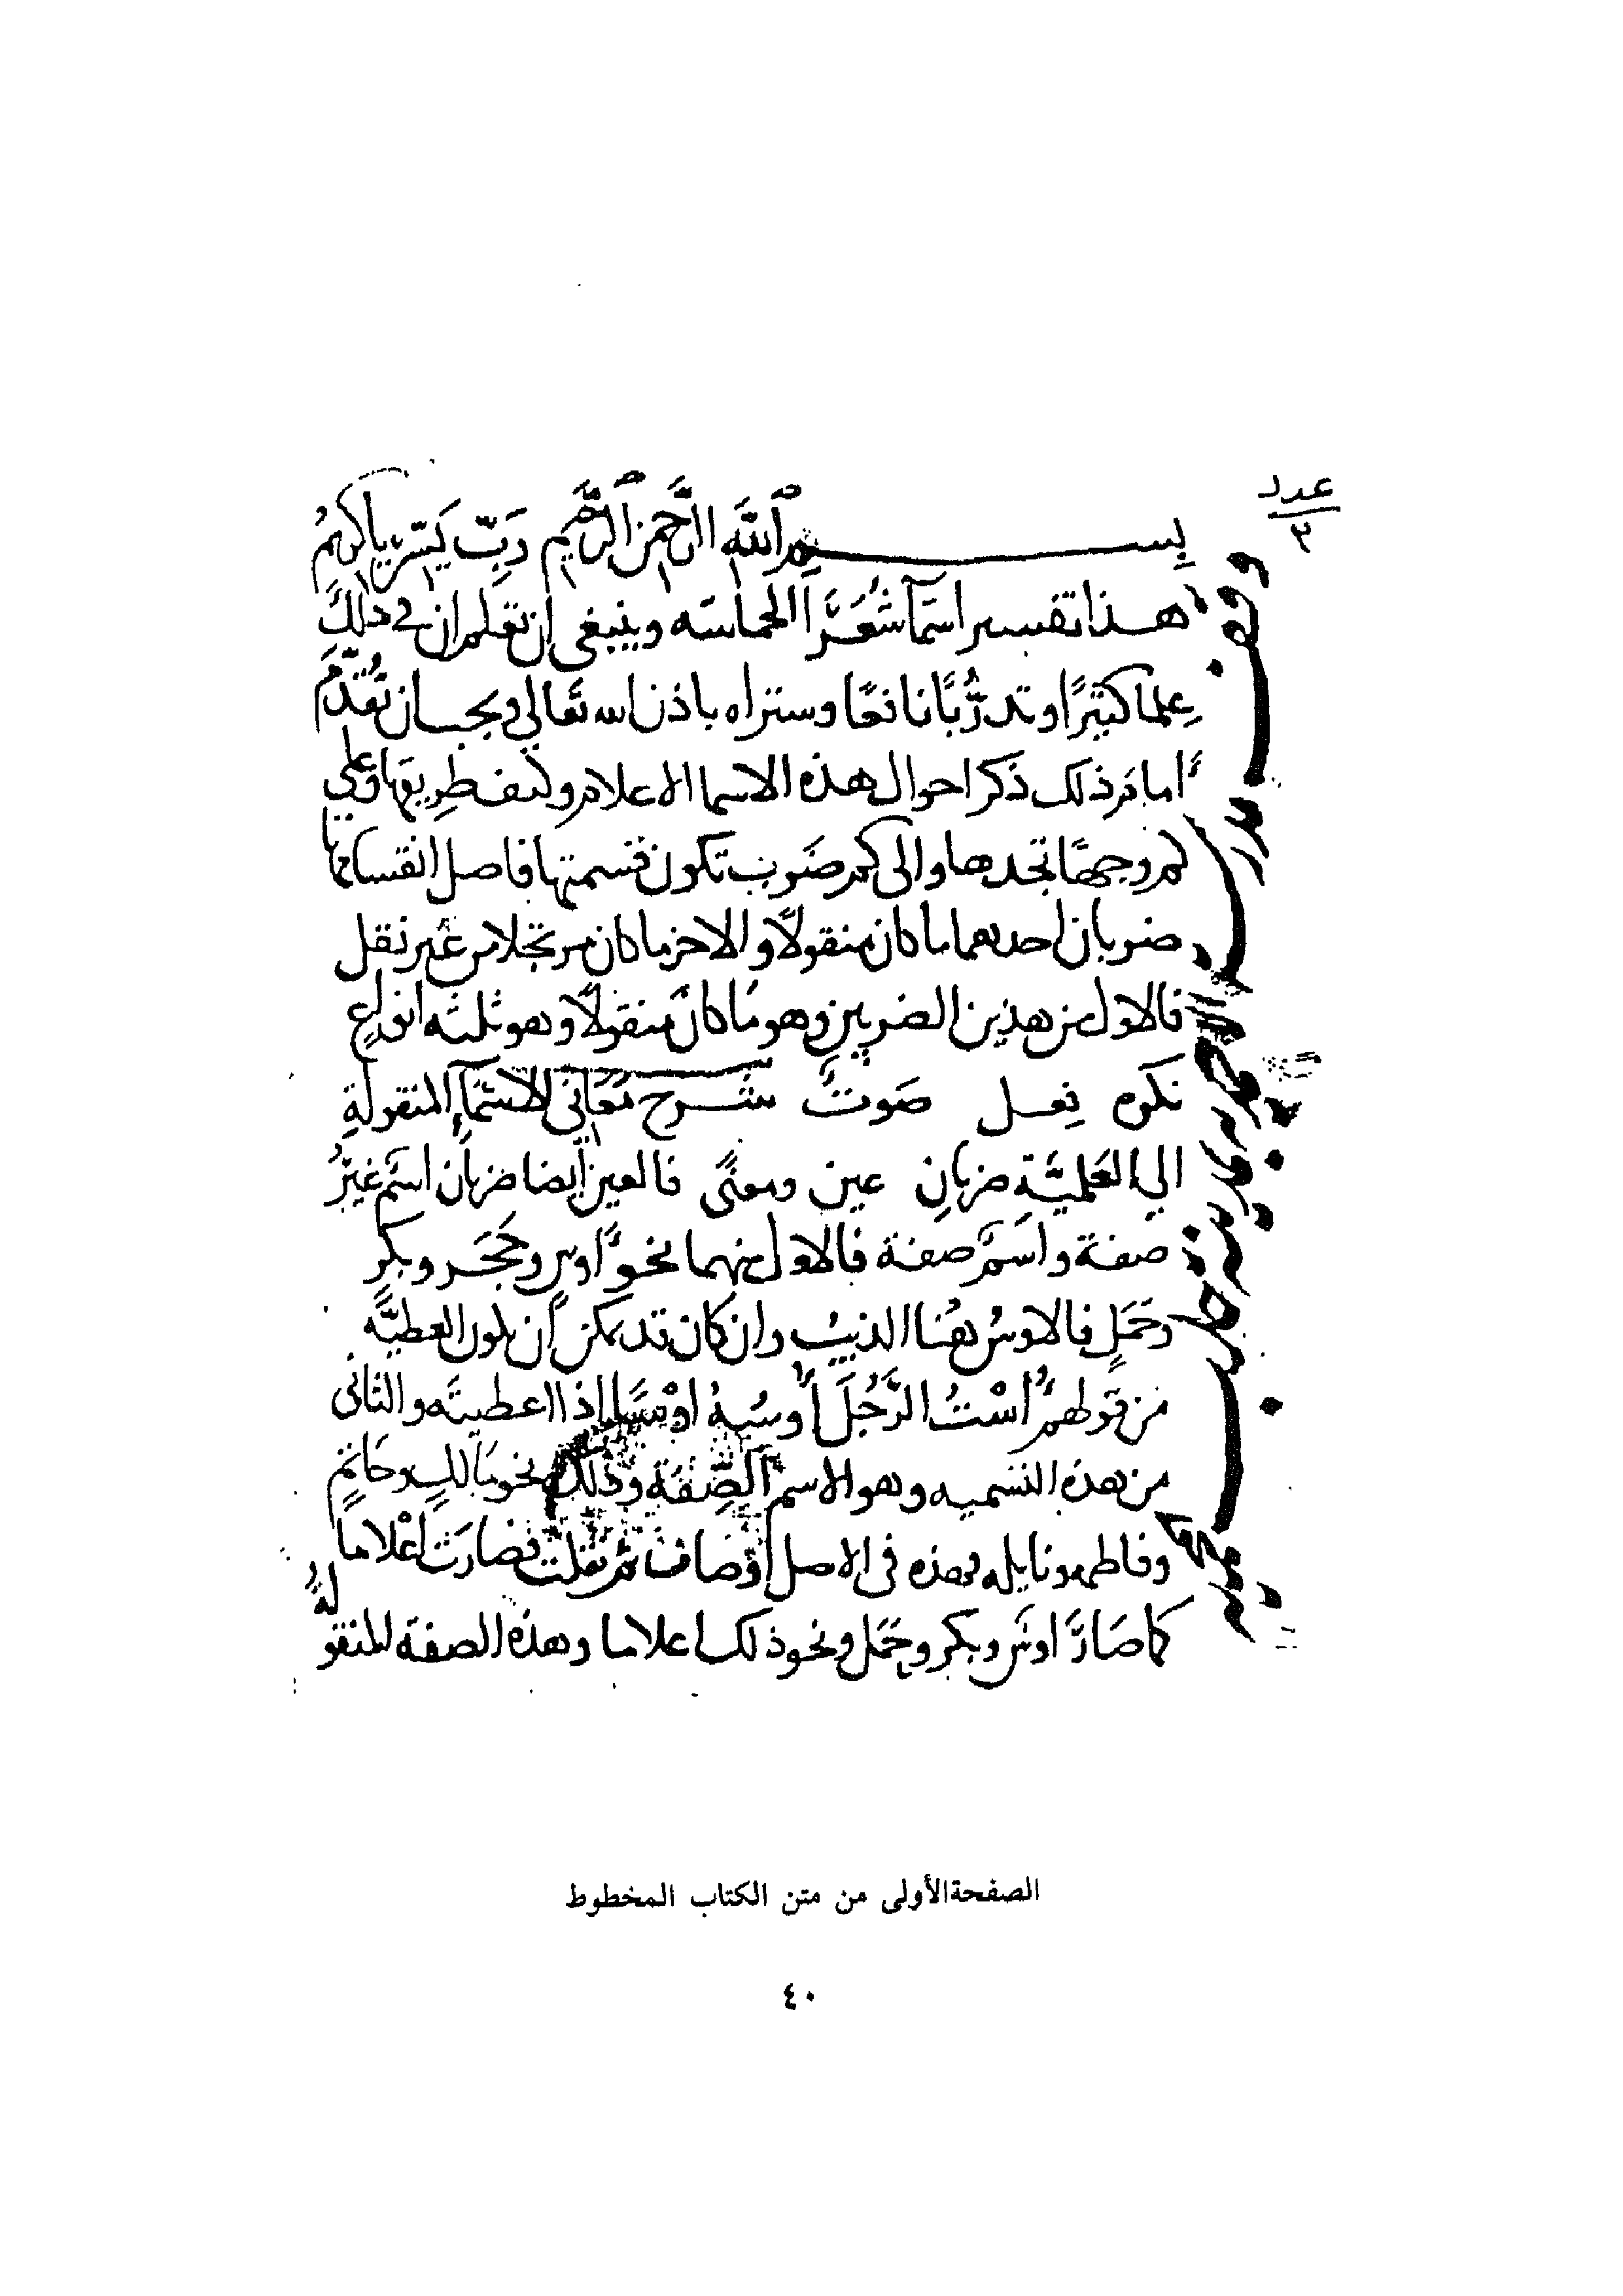 عدد
٣
بســـم الله الرحمن الرحيم رَبِّ يَسِّر يا كريمُ
هـذا تفسير اسمآ شُعَرَآ الحماسه وينبغي ان تعلم ان في ذلكَ
عِلما كثيرًا وتدرُّبًا نافعًا وستراه باذن الله تعَالي ويجب ان نُقدّمَ
أمام ذلك ذكر احوال هذه الاسما الاعلام وكيف طريقها وعلي
كم وجهًا تجدها والى كم ضَربٍ تكون قسمتها فاصل انقسامها
ضربان احدهما ما كان منقولًا والاخر ما كان مرتجلا من غير نقل
فالاول من هذين الضربين وهو مَا كان منقولًا وهو ثلثه انواعٍ
نكره فعـل صَوتٌ شـرح مَعَاني الاسْمَآءِ المنقولةِ
الي العَلميَّةِ ضربانِ عين ومعنًى فالعين أيضا ضربان اسْم غيرُ
صفة واسْمٌ صفة فالاول منهما نحوُ اوسٍ وحَجَر وبكرٍ
وحَمَلٍ فالاوسُ هُنا الذيبُ وان كان قد يمكن أن يكون العطيَّه
من قولهمْ أُسْتُ الرَّجُلَ أوسُهُ اوْسًا اذا اعطيته والثاني
من هذه التسميه وهو الاسم الصِّفَة وذلكَ نحو مَالكٍ وحَاتمٍ
وفاطمه ونايله فهذه في الاصل أوصَاف ثم نقلت فصارَت اعْلاما
كما صَارَ اوسٌ وبكر وحَمَل ونحو ذلك اعلاما وهذه الصفة المنقو
لةُ
الصفحة الأولى من متن الكتاب المخطوط
٤٠